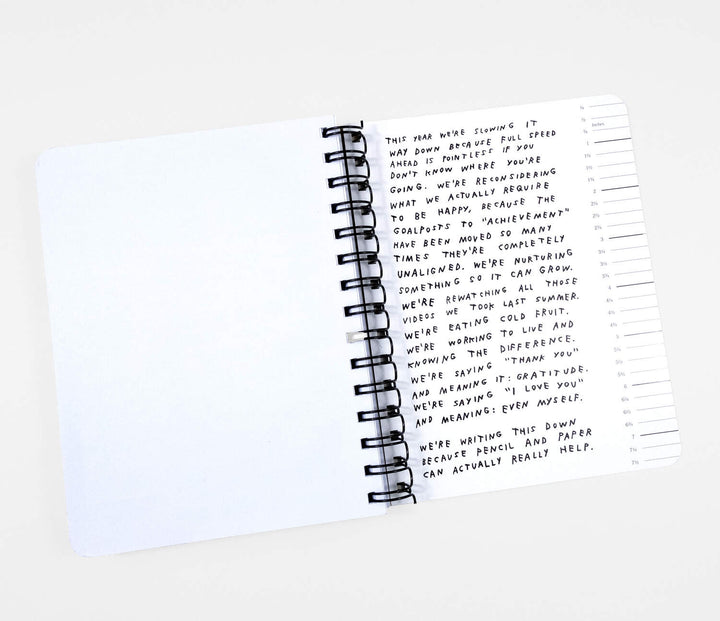 THIS YEAR WE'RE SLOWING IT
WAY DOWN BECAUSE FULL SPEED
AHEAD IS POINTLESS IF YOU
DON'T KNOW WHERE YOU'RE
GOING. WE'RE RECONSIDERING
WHAT WE ACTUALLY REQUIRE
TO BE HAPPY, BECAUSE THE
GOALPOSTS TO "ACHIEVEMENT"
HAVE BEEN MOVED SO MANY
TIMES THEY'RE COMPLETELY
UNALIGNED. WE'RE NURTURING
SOMETHING SO IT CAN GROW.
WE'RE REWATCHING ALL THOSE
VIDEOS WE TOOK LAST SUMMER.
WE'RE EATING COLD FRUIT.
WE'RE WORKING TO LIVE AND
KNOWING THE DIFFERENCE.
WE'RE SAYING "THANK YOU"
AND MEANING IT: GRATITUDE.
WE'RE SAYING "I LOVE YOU"
AND MEANING: EVEN MYSELF.
WE'RE WRITING THIS DOWN
BECAUSE PENCIL AND PAPER
CAN ACTUALLY REALLY HELP.